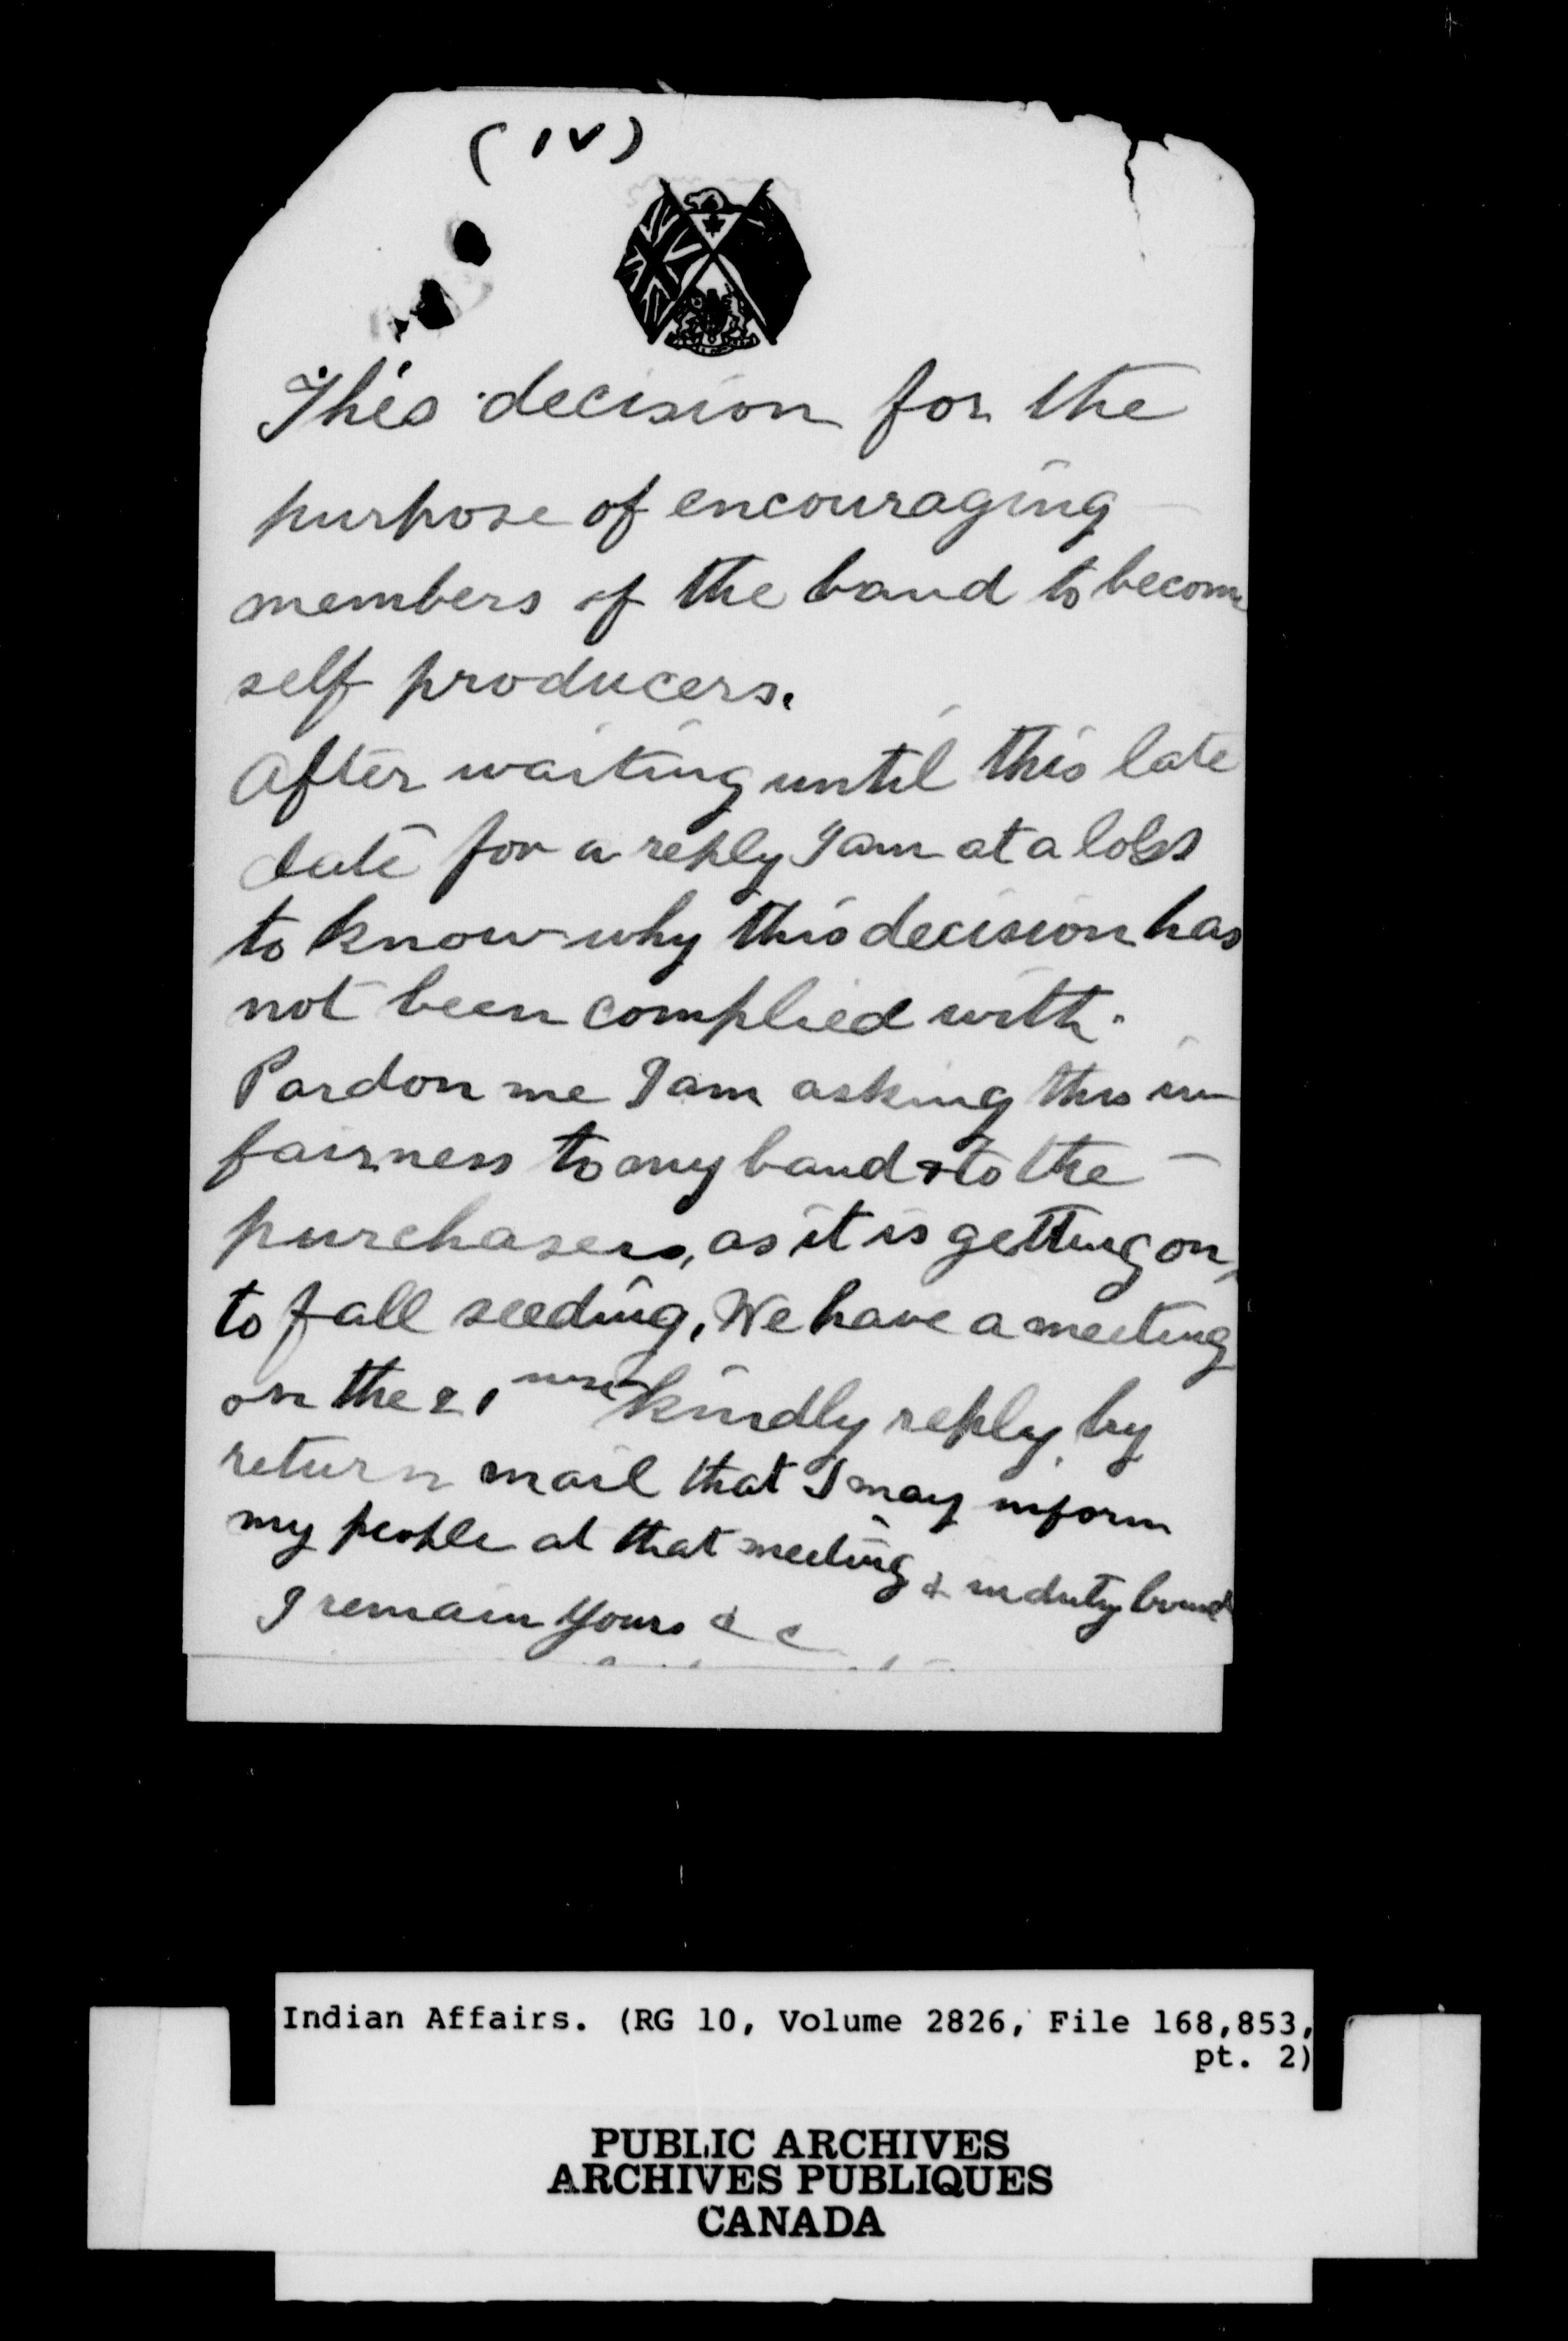 (IV)
This decision for the
purpose of encouraging
members of the band to become
self producers.
After waiting until this late
date for a reply I am at a loss
to know why this decision has
not been complied with.
Pardon me I am asking this in
fairness to my band & to the
purchasers, as it is getting on,
to fall seeding. We have a meeting
on the 21 inst kindly reply by
return mail that I may inform
my people at that meeting & in duty bound
I remain yours &c
Indian Affairs. (RG 10, Volume 2826, File 168,853,
pt. 2)
PUBLIC ARCHIVES
ARCHIVES PUBLIQUES
CANADA